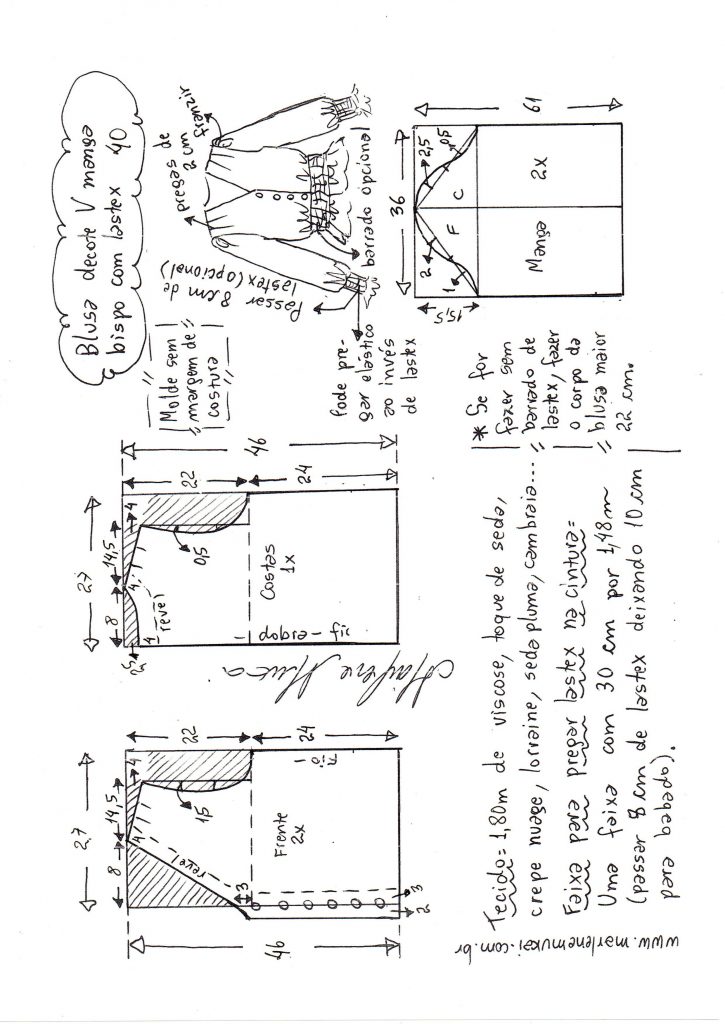 Blusa decote V manga
bispo com lastex 40
Molde sem
margem de
costura
pregas de
2 cm
franzir
Passar
8 cm de
lastex (opcional)
barrado opcional
Pode pre-
gar elástico
ao invés
de lastex
36
61
15,5
2
1
F
C
2,5
0,5
Manga
2X
27
8
14,5
46
22
24
4
4
1,5
revel
3
Frente
2x
fio
2
3
27
8
14,5
46
22
24
2,5
4
4
4
revel
0,5
Costas
1x
fio - dobra
Marlene Mukai
* Se for
fazer sem
barrado de
lastex, fazer
o corpo da
blusa maior
22 cm.
Tecido = 1,80m de viscose, toque de seda,
crepe nuage, lorraine, seda pluma, cambraia...
Faixa para pregar lastex na cintura =
Uma faixa com 30 cm por 1,48m
(passar 8 cm de lastex deixando 10 cm
para babado).
www.marlenemukai.com.br